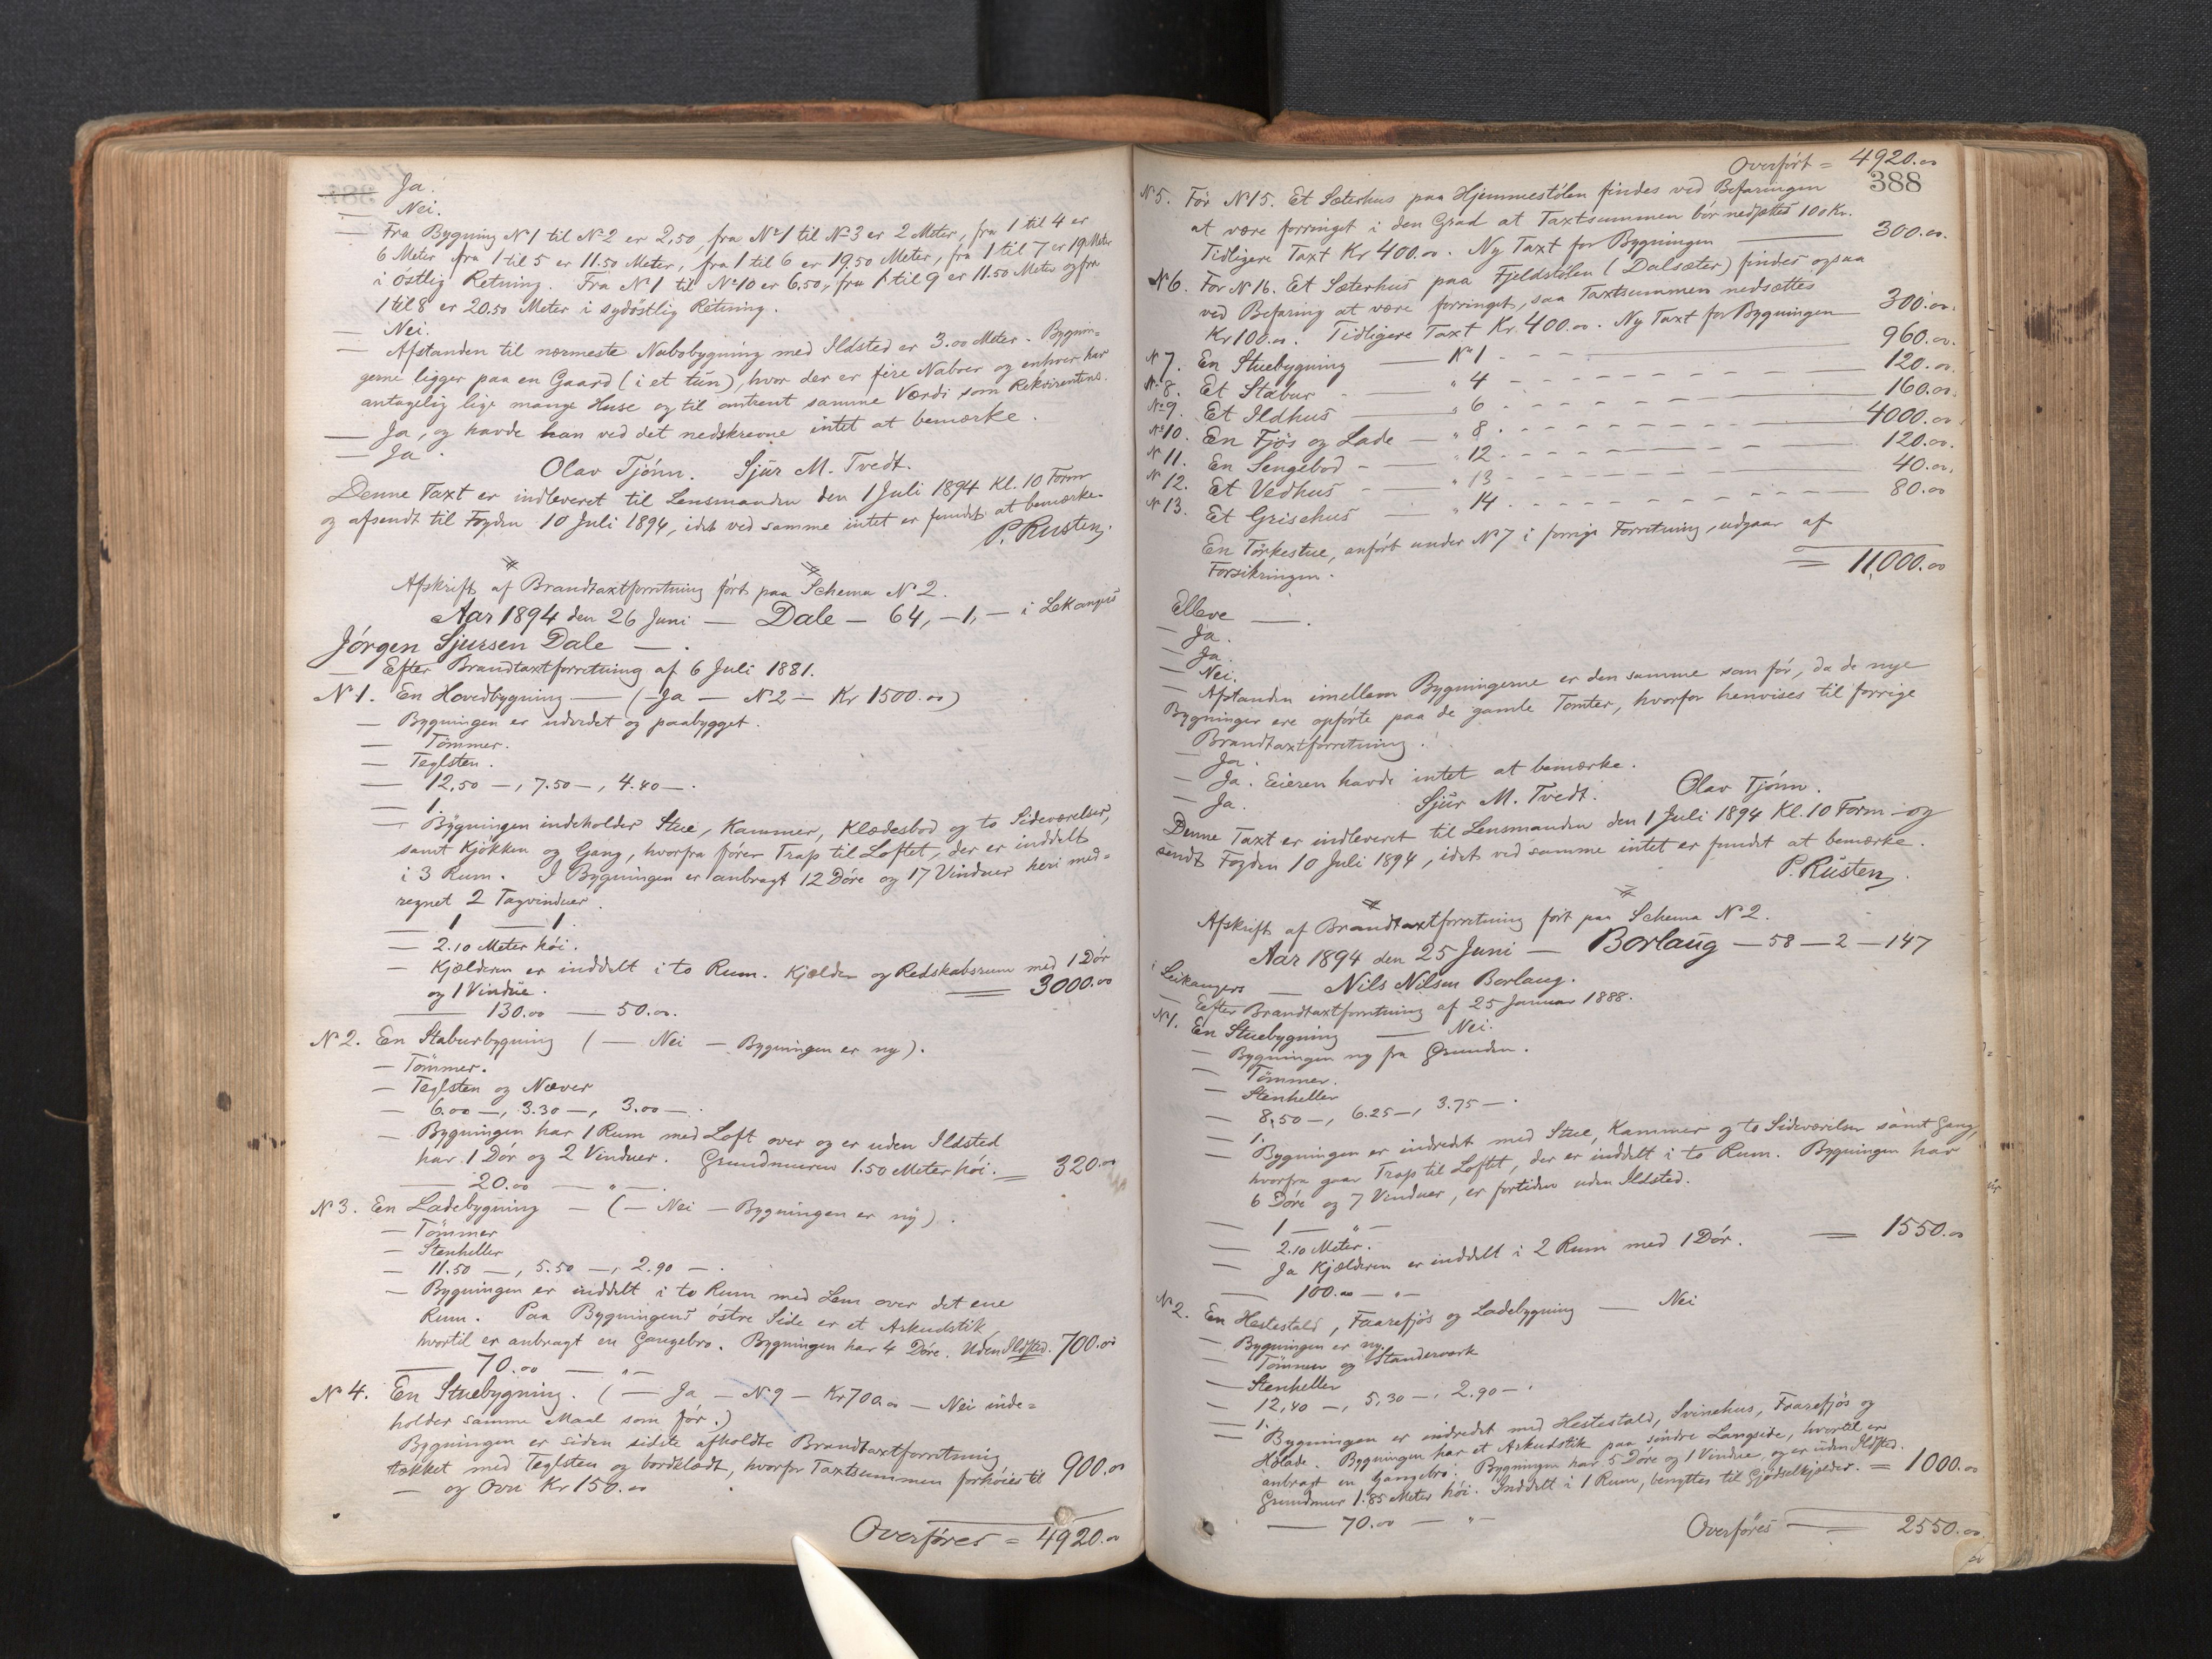 — Ja.
— Nei.
— Fra Bygning No 1 til No 2 er 2,50, fra No 1 til No 3 er 2 Meter, fra 1 til 4 er
6 Meter fra 1 til 5 er 11.50 Meter, fra 1 til 6 er 19,50 Meter, fra 1 til 7 er 19 Meter
i östlig Retning. Fra No 1 til No 10 er 6,50, fra 1 til 9 er 11.50 Meter og fra
1 til 8 er 20.50 Meter i sydöstlig Retning.
— Nei.
— Afstanden til nærmeste Nabobygning med Ildsted er 3.00 Meter. Bygnin=
gerne ligger paa en Gaard (i et tun), hvor der er fire Naboer og enhver har
antagelig lige mange Huse og til omtrent samme Værdi som Rekvirentens.
— Ja, og havde han ved det nedskrevne intet at bemærke.
— Ja.
Olav Tjönn. Sjur M. Tvedt.
Denne Taxt er indleveret til Lensmanden den 1 Juli 1894 Kl. 10 Form
og afsendt til Fogden 10 Juli 1894, idet ved samme intet er fundet at bemærke.
P. Rusten,
Afskrift af Brandtaxtforretning fört paa Schema No 2.
Aar 1894 den 26 Juni — Dale — 64, — 1, — i Lekangers
Jörgen Sjursen Dale — .
— Efter Brandtaxtforretning af 6 Juli 1881.
No 1. En Hovedbygning — (— Ja — No 2 — Kr 1500.00)
— Bygningen er udvidet og paabygget.
— Tömmer.
— Teglsten.
— 12,50 —, 7.50 —, 4.40 —.
— 1.
— Bygningen indeholder Stue, Kammer, Klædesbod og to Sideværelser,
samt Kjökken og Gang, hvorfra förer Trap til Loftet, der er inddelt
i 3 Rum. I Bygningen er anbragt 12 Döre og 17 Vinduer heri med=
regnet 2 Tagvinduer.
— 1 — 1.
— 2.10 Meter höi.
— Kjælderen er inddelt i to Rum. Kjælder og Redskabsrum med 1 Dör
og 1 Vindue. = 3000.00
— 130.00 — 50.00.
No 2. En Staburbygning (— Nei — Bygningen er ny).
— Tömmer.
— Teglsten og Næver
— 6.00 —, 3.30 —, 3.00 — .
— Bygningen har 1 Rum med Loft over og er uden Ildsted
har 1 Dör og 2 Vinduer. Grundmuren 1.50 Meter höi. = 320.00
— 20.00 — " —.
No 3. En Ladebygning — (— Nei — Bygningen er ny).
— Tömmer
— Stenheller
— 11.50 —, 5.50 —, 2.90 — .
— Bygningen er inddelt i to Rum med Lem over det ene
Rum. Paa Bygningens östre Side er et Arkudstik,
hvortil er anbragt en Gangebro. Bygningen har 4 Döre. Uden Ildsted. 700.00
— 70.00 — " —
No 4. En Stuebygning. (— Ja — No 9 — Kr 700.00 — Nei inde=
holder samme Maal som för.)
Bygningen er siden sidste afholdte Brandtaxtforretning
tækket med Teglsten og bordklædt, hvorfor Taxtsummen forhöies til 900.00
— og Ovn Kr 150.00
Overföres = 4920.00
Overfört = 4920.00
388
No 5. För No 15. Et Sæterhus paa Hjemmestölen findes ved Befaringen
at være forringet i den Grad at Taxtsummen bör nedsættes 100 Kr.
Tidligere Taxt Kr 400.00. Ny Taxt for Bygningen — 300.00.
No 6. För No 16. Et Sæterhus paa Fjeldstölen (Dalsæter) findes ogsaa
ved Befaring at være forringet, saa Taxtsummen nedsættes
Kr 100.00. Tidligere Taxt Kr. 400.00. Ny Taxt for Bygningen — 300.00.
No 7. En Stuebygning — No 1 - - - 960.00.
No 8. Et Stabur - — " 4 - - - 120.00.
No 9. Et Ildhus — " 6 - - - 160.00.
No 10. En Fjös og Lade — " 8 - - - 4000.00.
No 11. En Sengebod - — " 12 - - - 120.00.
No 12. Et Vedhus - — " 13 - - - 40.00.
No 13. Et Grisehus — " 14 - - - 80.00
En Törkestue, anfört under No 7 i forrige Forretning, udgaar af
Forsikringen. = 11,000.00
Elleve — .
— Ja.
— Ja.
— Nei.
— Afstanden imellem Bygningerne er den samme som för, da de nye
Bygninger ere opförte paa de gamle Tomter, hvorfor henvises til forrige
Brandtaxtforretning.
— Ja.
— Ja. Eieren havde intet at bemærke.
— Ja.
Sjur M. Tvedt. Olav Tjönn.
Denne Taxt er indleveret til Lensmanden den 1 Juli 1894 Kl. 10 Form — og
sendt Fogden 10 Juli 1894, idet ved samme intet er fundet at bemærke.
P. Rusten,
Afskrift af Brandtaxtforretning fört paa Schema No 2.
Aar 1894 den 25 Juni — Borlaug — 58 — 2 — 147
i Leikangers — Nils Nilsen Borlaug.
— Efter Brandtaxtforretning af 25 Januar 1888.
No 1. En Stuebygning — Nei.
— Bygningen ny fra Grunden.
— Tömmer.
— Stenheller
— 8,50 —, 6.25 —, 3.75 — .
— 1.
— Bygningen er indredet med Stue, Kammer og to Sideværelser samt Gang,
hvorfra gaar Trap til Loftet, der er inddelt i to Rum. Bygningen har
6 Döre og 7 Vinduer, er fortiden uden Ildsted.
— 1 — " —
— 2.10 Meter.
— Ja Kjælderen er inddelt i 2 Rum med 1 Dör. = 1550.00
— 100.00 — " —
No 2. En Hestestald, Faarefjös og Ladebygning — Nei
— Bygningen er ny.
— Tömmer og Standerværk
— Stenheller
— 12,40 —, 5,30 —, 2.90 — .
— 1.
— Bygningen er indredet med Hestestald, Svinehus, Faarefjös og
Hölade. Bygningen har et Arkudstik paa söndre Langside, hvortil er
anbragt en Gangebro. Bygningen har 5 Döre og 1 Vindue, og er uden Ildsted.
Grundmur 1.85 Meter höi. Inddelt i 1 Rum, benyttes til Gjödselkjælder. = 1000.00
— 70.00 — " —
Overföres — = 2550.00